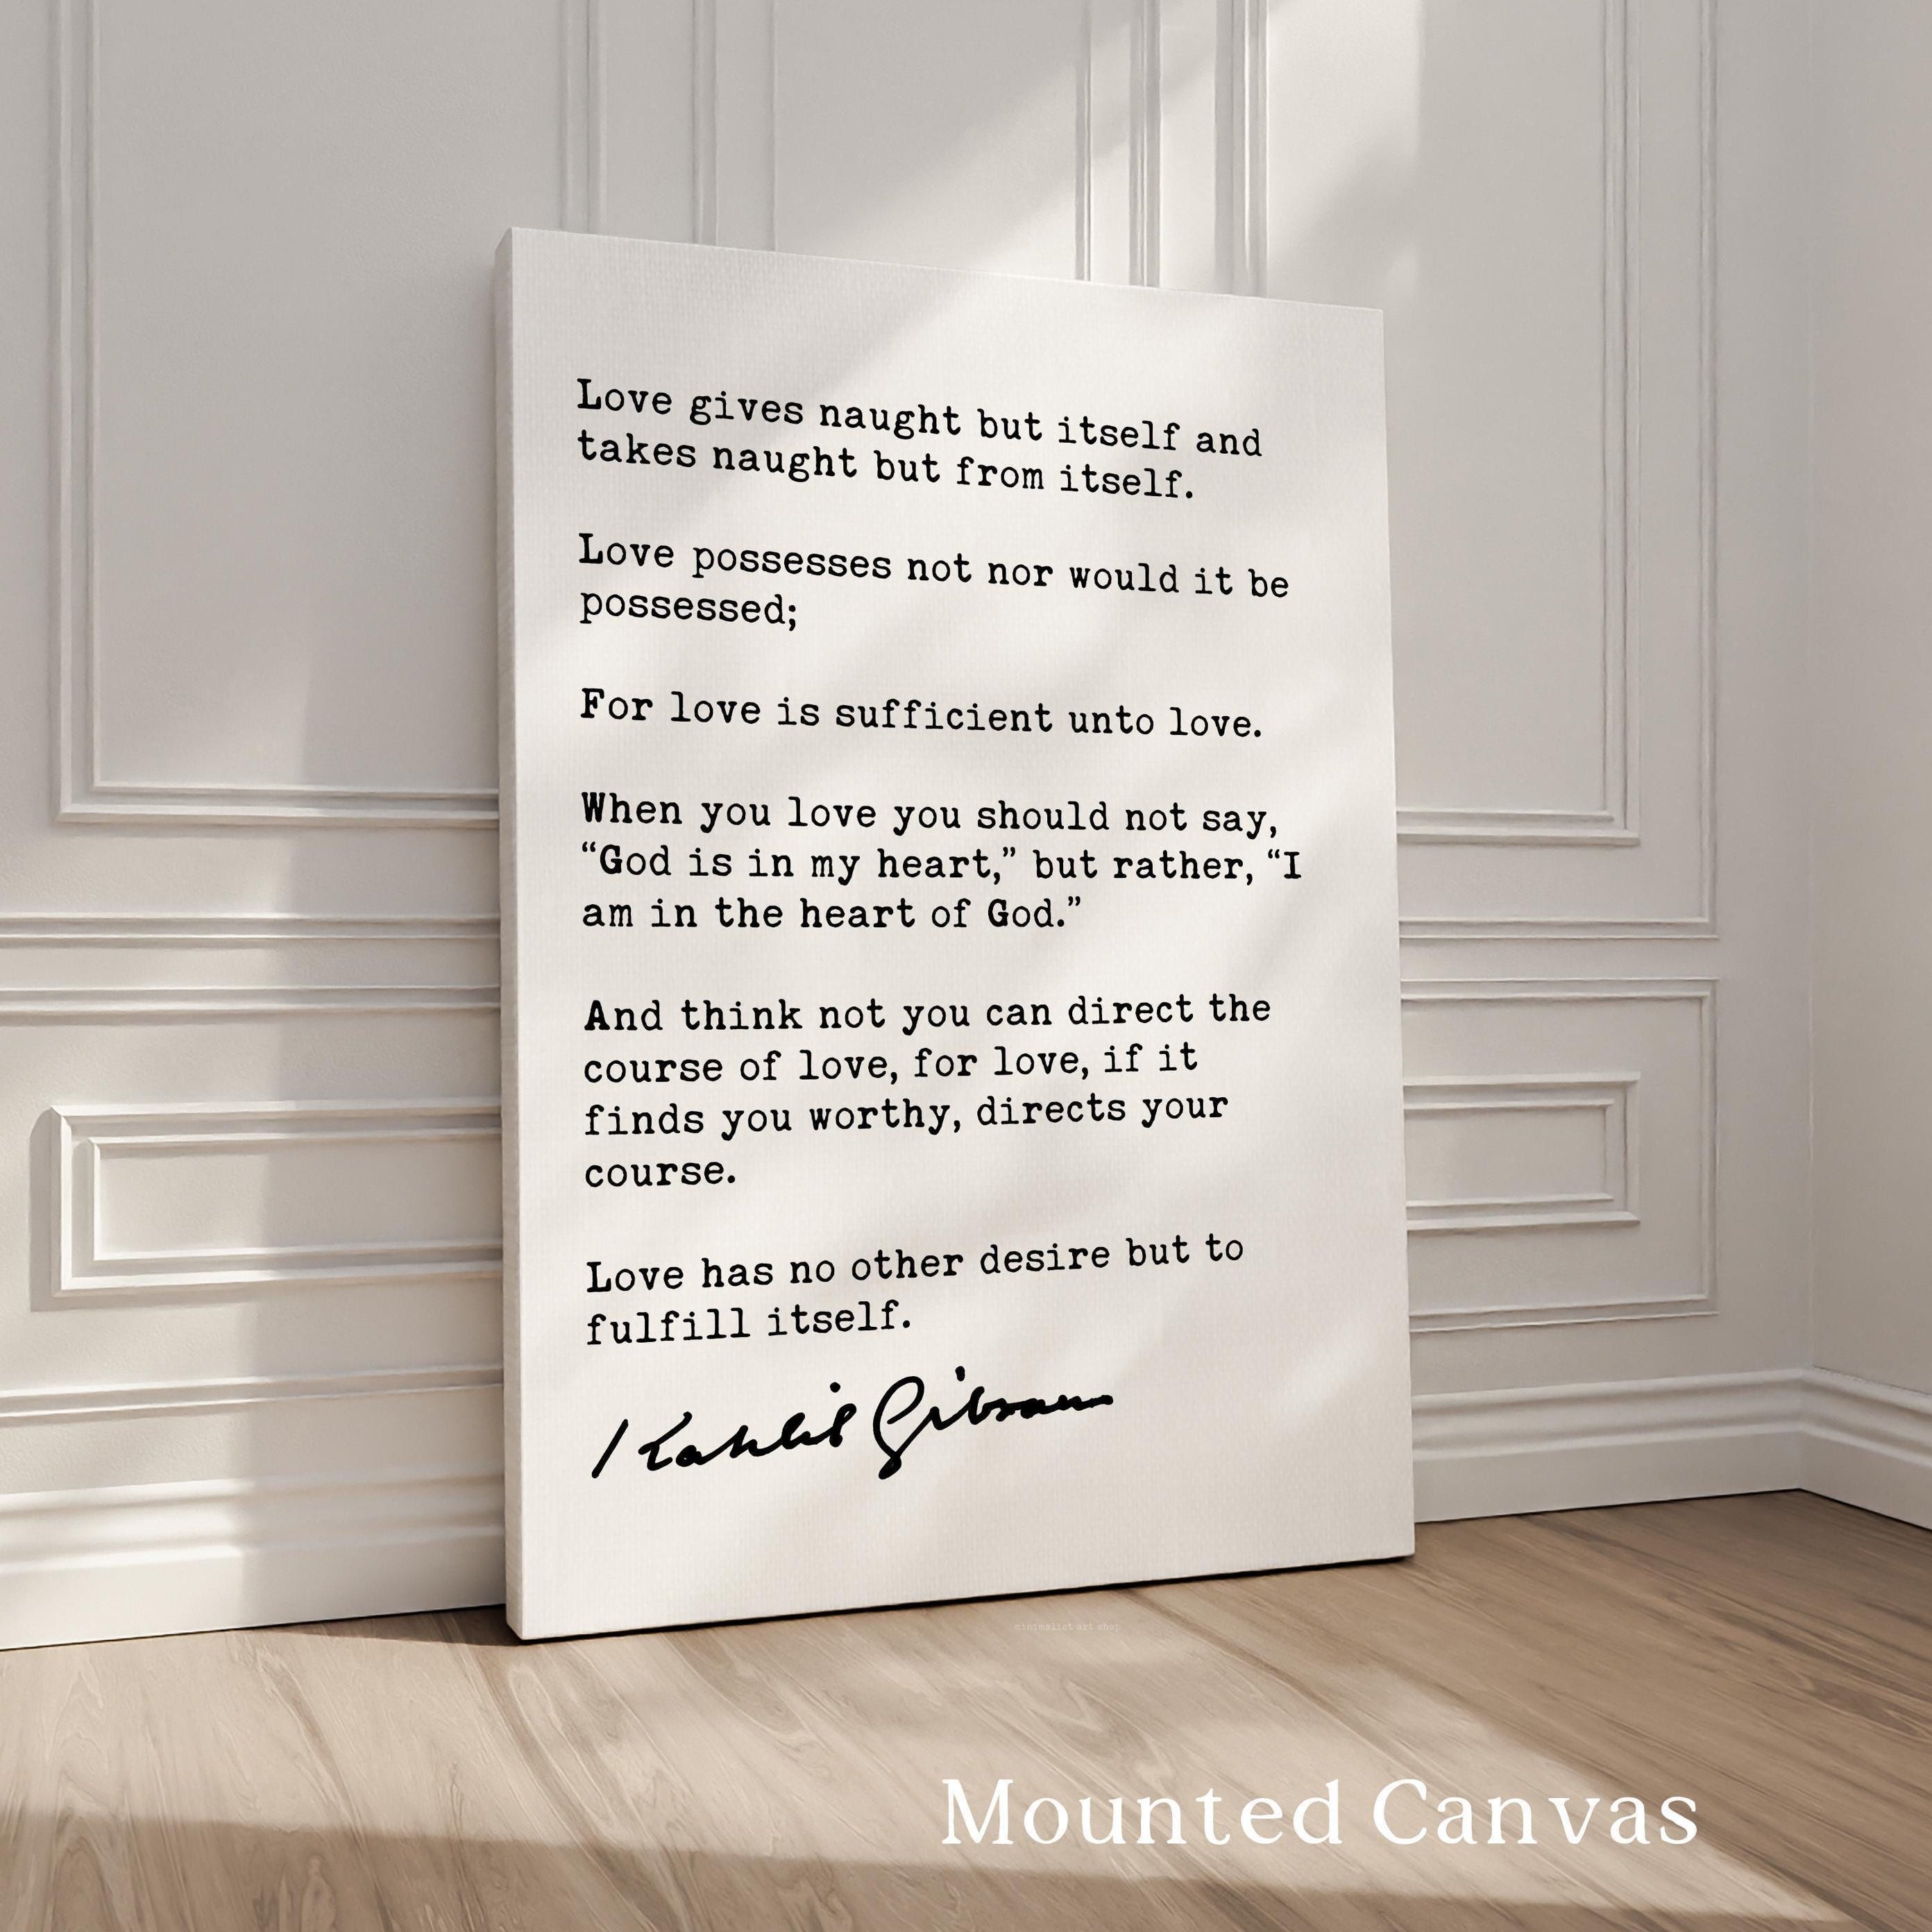 Love gives naught but itself and
takes naught but from itself.
Love possesses not nor would it be
possessed;
For love is sufficient unto love.
When you love you should not say,
“God is in my heart,” but rather, “I
am in the heart of God.”
And think not you can direct the
course of love, for love, if it
finds you worthy, directs your
course.
Love has no other desire but to
fulfill itself.
Kahlil Gibran
minimalist art shop
Mounted Canvas